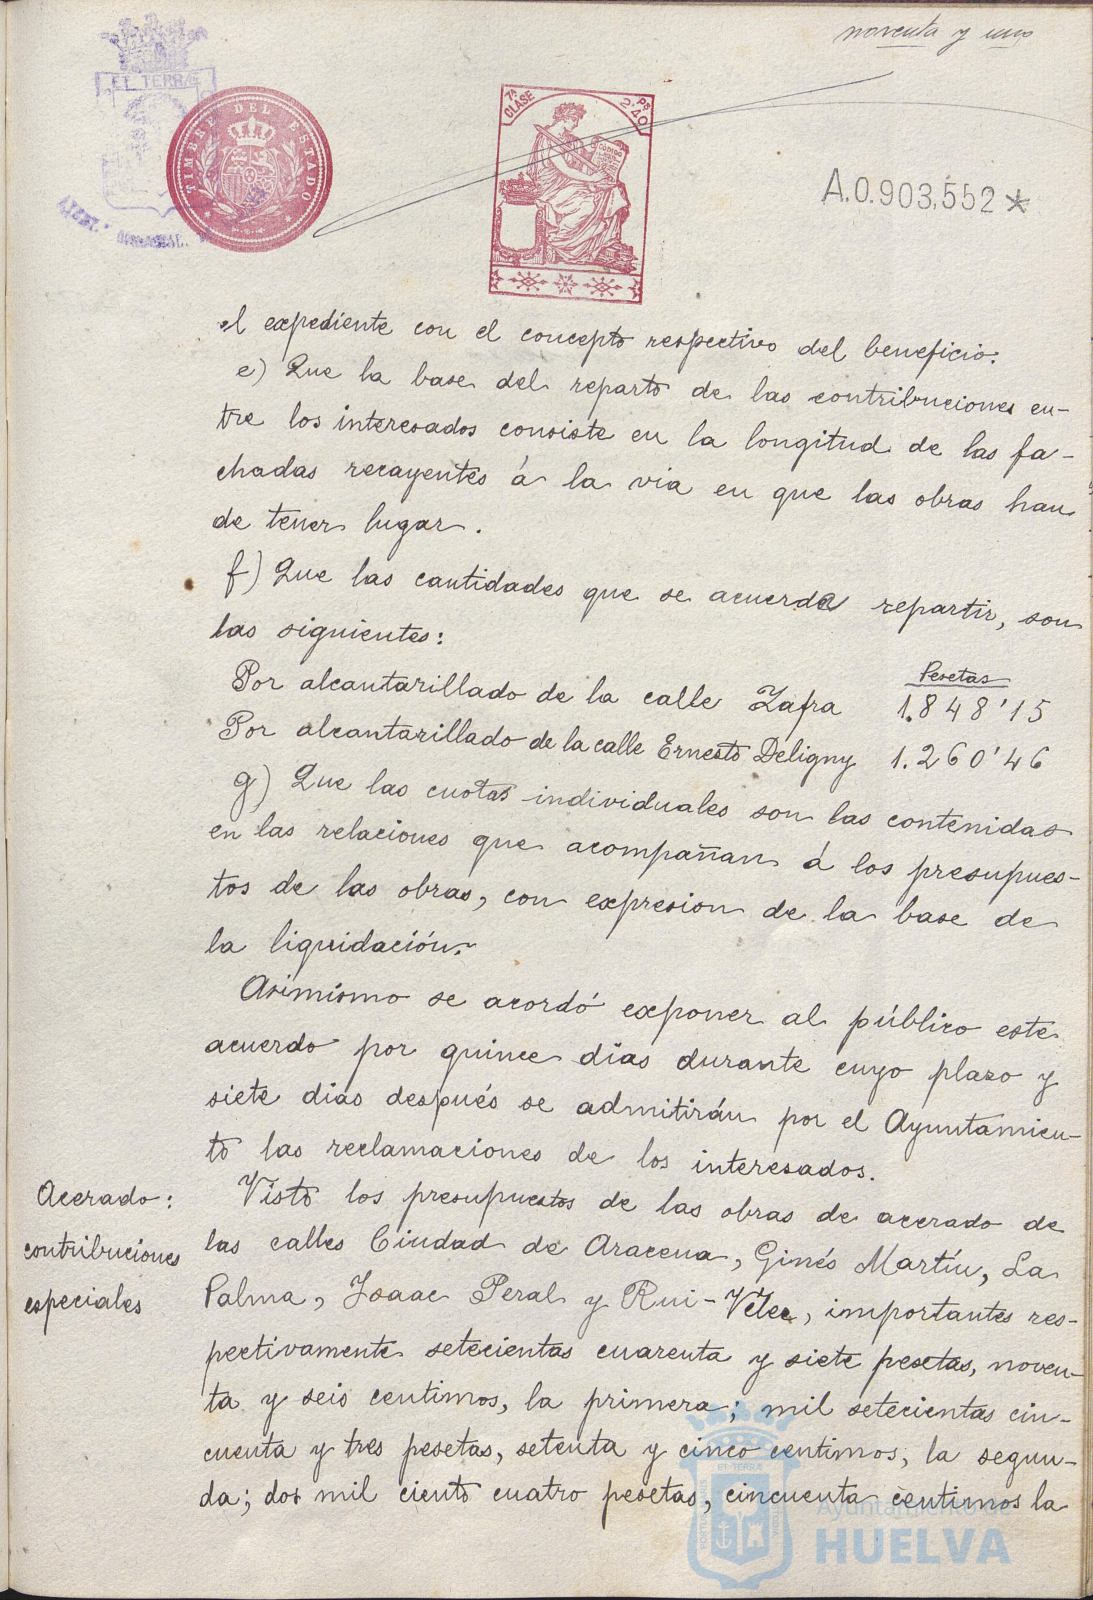 noventa y uno
EL TERRÆ
TIMBRE DEL ESTADO
7ª CLASE
Ps 2'40
CODIGO
A.0.903,552*
el expediente con el concepto respectivo del beneficio.
e) Que la base del reparto de las contribuciones en-
tre los interesados consiste en la longitud de las fa-
chadas recayentes á la via en que las obras han
de tener lugar.
f) Que las cantidades que se acuerda repartir, son
las siguientes:
Pesetas
Por alcantarillado de la calle Zafra 1.848'15
Por alcantarillado de la calle Ernesto Deligny 1.260'46
g) Que las cuotas individuales son las contenidas
en las relaciones que acompañan á los presupues-
tos de las obras, con expresion de la base de
la liquidación.
Asimismo se acordó exponer al público este
acuerdo por quince dias durante cuyo plazo y
siete dias después se admitirán por el Ayuntamien-
to las reclamaciones de los interesados.
Acerado:
contribuciones
especiales
Visto los presupuestos de las obras de acerado de
las calles Ciudad de Aracena, Ginés Martín, La
Palma, Isaac Peral y Rui-Vélez, importantes res-
pectivamente setecientas cuarenta y siete pesetas, noven-
ta y seis centimos, la primera; mil setecientas cin-
cuenta y tres pesetas, setenta y cinco centimos, la segun-
da; dos mil ciento cuatro pesetas, cincuenta centimos la
Ayuntamiento de
HUELVA